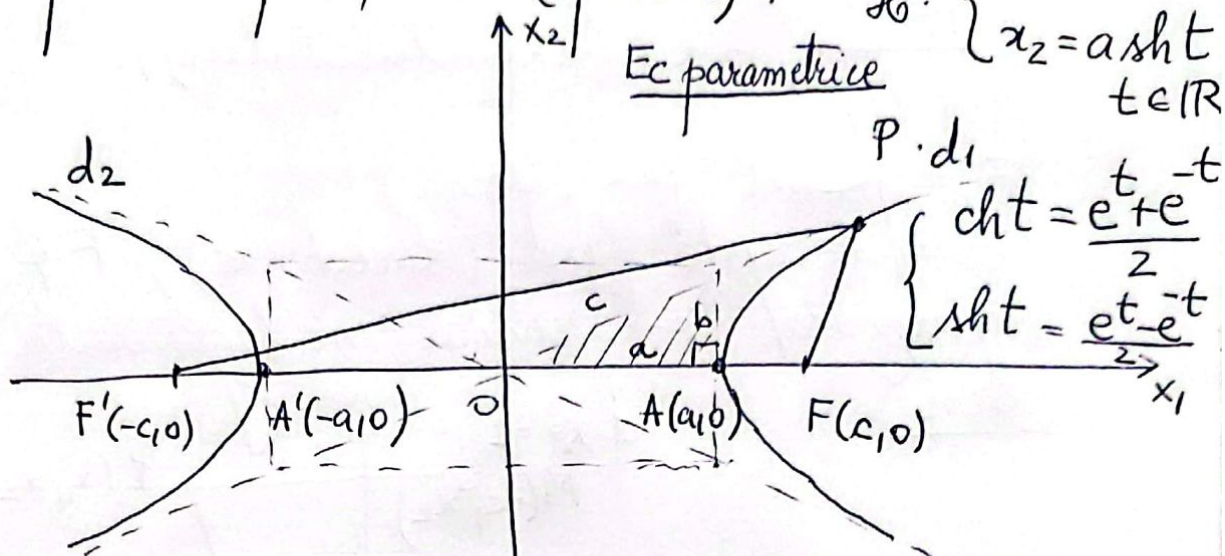 x₂
Ec parametrice
x₂ = a sh t
t ∈ ℝ
P · d₁
d₂
ch t = (e^t + e^-t)/2
sh t = (e^t - e^-t)/2
c
b
a
x₁
F'(-c,0)
A'(-a,0)
O
A(a,0)
F(c,0)